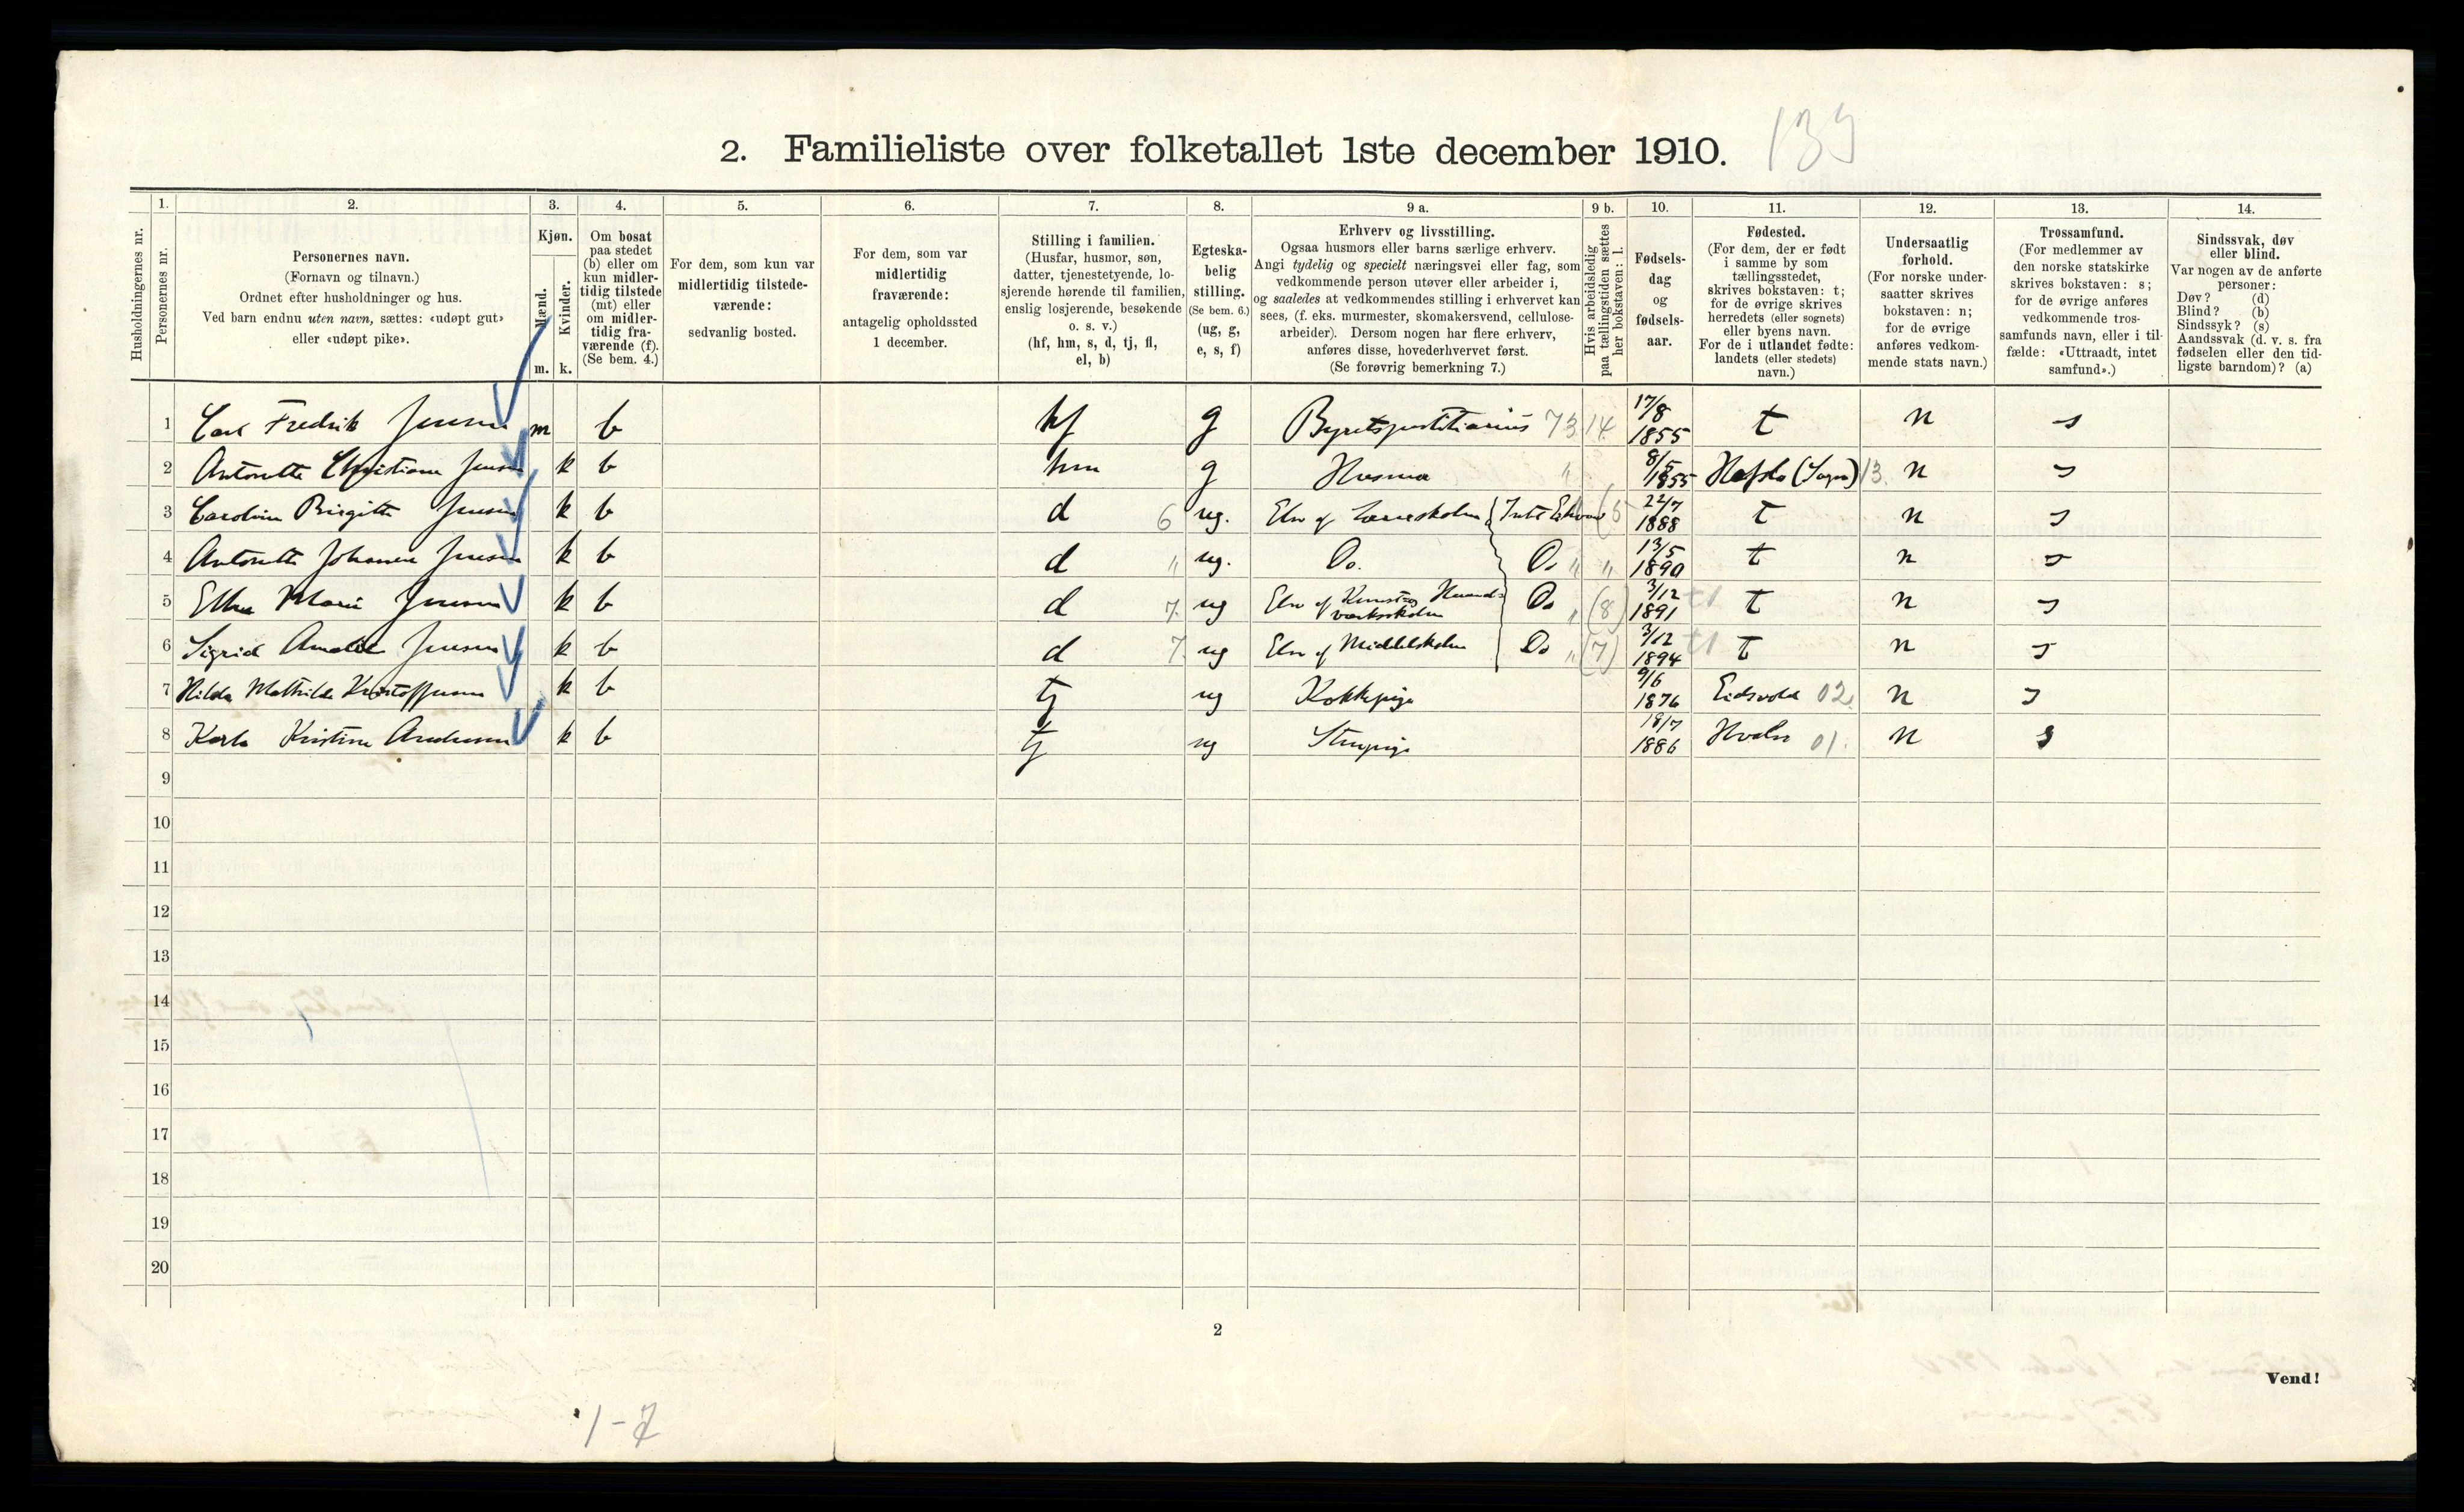 2. Familieliste over folketallet 1ste december 1910. 133
Husholdningernes nr.
1. Personernes nr.
2. Personernes navn.
(Fornavn og tilnavn.)
Ordnet efter husholdninger og hus.
Ved barn endnu uten navn, sættes: «udøpt gut»
eller «udøpt pike».
3. Kjøn.
Mænd. m.
Kvinder. k.
4. Om bosat
paa stedet
(b) eller om
kun midler-
tidig tilstede
(mt) eller
om midler-
tidig fra-
værende (f).
(Se bem. 4.)
5. For dem, som kun var
midlertidig tilstede-
værende:
sedvanlig bosted.
6. For dem, som var
midlertidig
fraværende:
antagelig opholdssted
1 december.
7. Stilling i familien.
(Husfar, husmor, søn,
datter, tjenestetyende, lo-
sjerende hørende til familien,
enslig losjerende, besøkende
o. s. v.)
(hf, hm, s, d, tj, fl,
el, b)
8. Egteska-
belig
stilling.
(Se bem. 6.)
(ug, g,
e, s, f)
9 a. Erhverv og livsstilling.
Ogsaa husmors eller barns særlige erhverv.
Angi tydelig og specielt næringsvei eller fag, som
vedkommende person utøver eller arbeider i,
og saaledes at vedkommendes stilling i erhvervet kan
sees, (f. eks. murmester, skomakersvend, cellulose-
arbeider). Dersom nogen har flere erhverv,
anføres disse, hovederhvervet først.
(Se forøvrig bemerkning 7.)
9 b. Hvis arbeidsledig
paa tællingstiden sættes
her bokstaven: l.
10. Fødsels-
dag
og
fødsels-
aar.
11. Fødested.
(For dem, der er født
i samme by som
tællingsstedet,
skrives bokstaven: t;
for de øvrige skrives
herredets (eller sognets)
eller byens navn.
For de i utlandet fødte:
landets (eller stedets)
navn.)
12. Undersaatlig
forhold.
(For norske under-
saatter skrives
bokstaven: n;
for de øvrige
anføres vedkom-
mende stats navn.)
13. Trossamfund.
(For medlemmer av
den norske statskirke
skrives bokstaven: s;
for de øvrige anføres
vedkommende tros-
samfunds navn, eller i til-
fælde: «Uttraadt, intet
samfund».)
14. Sindssvak, døv
eller blind.
Var nogen av de anførte
personer:
Døv? (d)
Blind? (b)
Sindssyk? (s)
Aandssvak (d. v. s. fra
fødselen eller den tid-
ligste barndom)? (a)
1 Carl Fredrik Jensen m b hf g Byretsjustitiarius 73 14 17/8 1855 t n s
2 Antonette Christiane Jensen k b hm g Husmor " 8/5 1855 Hafslo (Sogn) 13. n s
3 Caroline Birgitte Jensen k b d 6 ug. Elev af Lærerskolen Intet Erhverv (5 22/7 1888 t n s
4 Antonette Johanne Jensen k b d " ug. Do. Do " " 13/5 1890 t n s
5 Ebba Marie Jensen k b d 7. ug Elev af Kunst og Haand-
værksskolen Do " (8) 3/12 1891 t1 t n s
6 Sigrid Amalie Jensen k b d 7. ug Elev af Middelskolen Do " (7) 3/12 1894 t1 t n s
7 Hilda Mathilde Kristoffersen k b tj ug Kokkepige 9/6 1876 Eidsvold 02. n s
8 Karla Kristine Andersen k b tj ug Stuepige 18/7 1886 Hvaler 01. n s
9
10
11
12
13
14
15
16
17
18
19
20
2
Vend!
1-7